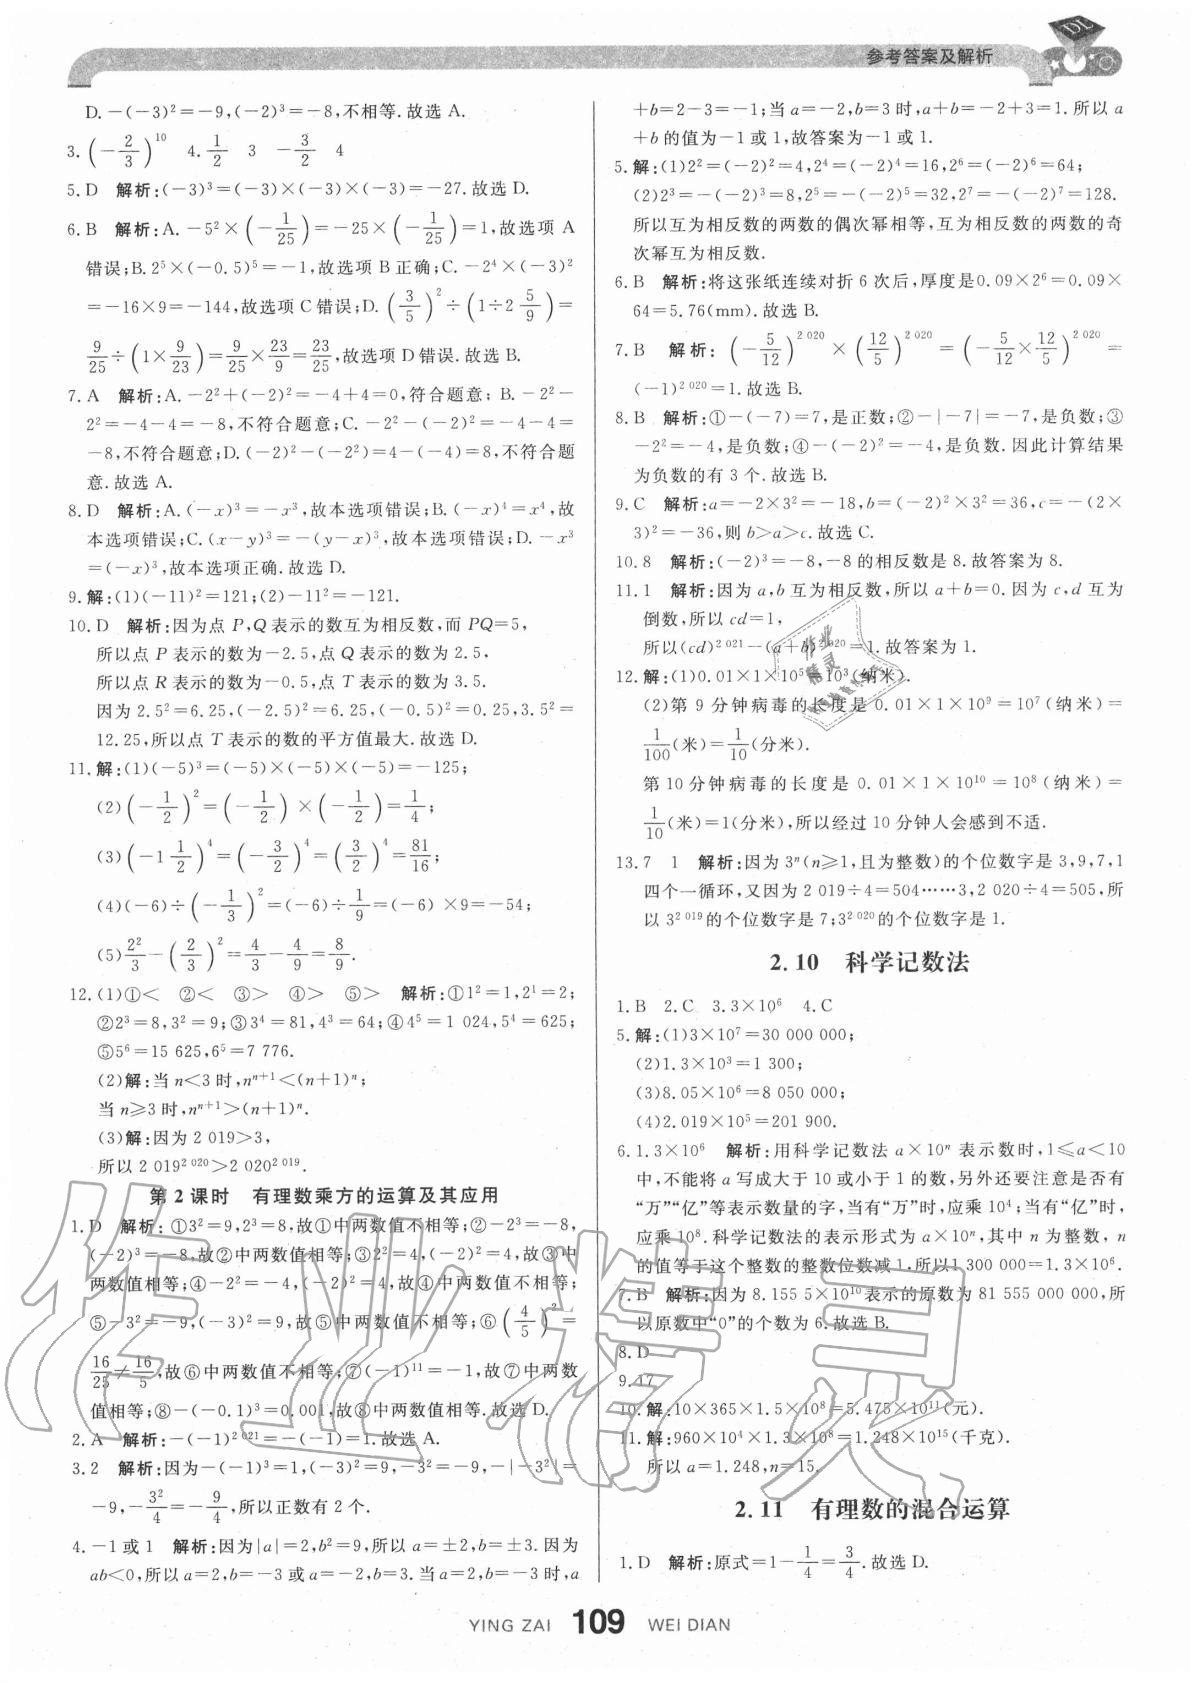 参考答案及解析
DL
D.-(-3)²=-9,(-2)³=-8,不相等.故选 A.
3.(-2/3)¹⁰ 4.1/2 3 -3/2 4
5.D 解析:(-3)³=(-3)×(-3)×(-3)=-27.故选 D.
6.B 解析:A.-5²×(-1/25)=-25×(-1/25)=1,故选项 A
错误;B.2⁵×(-0.5)⁵=-1,故选项 B 正确;C.-2⁴×(-3)²
=-16×9=-144,故选项 C 错误;D.(3/5)²÷(1÷2 5/9)=
9/25÷(1×9/23)=9/25×23/9=23/25,故选项 D 错误.故选 B.
7.A 解析:A.-2²+(-2)²=-4+4=0,符合题意;B.-2²-
2²=-4-4=-8,不符合题意;C.-2²-(-2)²=-4-4=
-8,不符合题意;D.(-2)²-(-2²)=4-(-4)=8,不符合题
意.故选 A.
8.D 解析:A.(-x)³=-x³,故本选项错误;B.(-x)⁴=x⁴,故
本选项错误;C.(x-y)³=-(y-x)³,故本选项错误;D.-x³
=(-x)³,故本选项正确.故选 D.
9.解:(1)(-11)²=121;(2)-11²=-121.
10.D 解析:因为点 P,Q 表示的数互为相反数,而 PQ=5,
所以点 P 表示的数为-2.5,点 Q 表示的数为 2.5,
所以点 R 表示的数为-0.5,点 T 表示的数为 3.5.
因为 2.5²=6.25,(-2.5)²=6.25,(-0.5)²=0.25,3.5²=
12.25,所以点 T 表示的数的平方值最大.故选 D.
11.解:(1)(-5)³=(-5)×(-5)×(-5)=-125;
(2)(-1/2)²=(-1/2)×(-1/2)=1/4;
(3)(-1 1/2)⁴=(-3/2)⁴=(3/2)⁴=81/16;
(4)(-6)÷(-1/3)²=(-6)÷1/9=(-6)×9=-54;
(5)2²/3-(2/3)²=4/3-4/9=8/9.
12.(1)①< ②< ③> ④> ⑤> 解析:①1²=1,2¹=2;
②2³=8,3²=9;③3⁴=81,4³=64;④4⁵=1 024,5⁴=625;
⑤5⁶=15 625,6⁵=7 776.
(2)解:当 n<3 时,nⁿ⁺¹<(n+1)ⁿ;
当 n≥3 时,nⁿ⁺¹>(n+1)ⁿ.
(3)解:因为 2 019>3,
所以 2 019²⁰²⁰>2 020²⁰¹⁹.
第 2 课时 有理数乘方的运算及其应用
1.D 解析:①3²=9,2³=8,故①中两数值不相等;②-2³=-8,
(-2)³=-8,故②中两数值相等;③2²=4,(-2)²=4,故③中
两数值相等;④-2²=-4,(-2)²=4,故④中两数值不相等;
⑤-3²=-9,(-3)²=9,故⑤中两数值不相等;⑥(4/5)²=
16/25≠16/5,故⑥中两数值不相等;⑦(-1)¹¹=-1,故⑦中两数
值相等;⑧-(-0.1)³=0.001,故⑧中两数值相等.故选 D.
2.A 解析:-(-1)²⁰²¹=-(-1)=1.故选 A.
3.2 解析:因为-(-1)³=1,(-3)²=9,-3²=-9,-|-3²|=
-9,-3²/4=-9/4,所以正数有 2 个.
4.-1 或 1 解析:因为|a|=2,b²=9,所以 a=±2,b=±3.因为
ab<0,所以 a=2,b=-3 或 a=-2,b=3.当 a=2,b=-3 时,a
+b=2-3=-1;当 a=-2,b=3 时,a+b=-2+3=1.所以 a
+b 的值为-1 或 1,故答案为-1 或 1.
5.解:(1)2²=(-2)²=4,2⁴=(-2)⁴=16,2⁶=(-2)⁶=64;
(2)2³=-(-2)³=8,2⁵=-(-2)⁵=32,2⁷=-(-2)⁷=128.
所以互为相反数的两数的偶次幂相等,互为相反数的两数的奇
次幂互为相反数.
6.B 解析:将这张纸连续对折 6 次后,厚度是 0.09×2⁶=0.09×
64=5.76(mm).故选 B.
7.B 解析:(-5/12)²⁰²⁰×(12/5)²⁰²⁰=(-5/12×12/5)²⁰²⁰=
(-1)²⁰²⁰=1.故选 B.
8.B 解析:①-(-7)=7,是正数;②-|-7|=-7,是负数;③
-2²=-4,是负数;④-(-2)²=-4,是负数.因此计算结果
为负数的有 3 个.故选 B.
9.C 解析:a=-2×3²=-18,b=(-2)²×3²=36,c=-(2×
3)²=-36,则 b>a>c.故选 C.
10.8 解析:(-2)³=-8,-8 的相反数是 8.故答案为 8.
11.1 解析:因为 a,b 互为相反数,所以 a+b=0.因为 c,d 互为
倒数,所以 cd=1,
所以(cd)²⁰²¹-(a+b)²⁰²⁰=1.故答案为 1.
12.解:(1)0.01×1×10⁵=10³(纳米).
(2)第 9 分钟病毒的长度是 0.01×1×10⁹=10⁷(纳米)=
1/100(米)=1/10(分米).
第 10 分钟病毒的长度是 0.01×1×10¹⁰=10⁸(纳米)=
1/10(米)=1(分米),所以经过 10 分钟人会感到不适.
13.7 1 解析:因为 3ⁿ(n≥1,且为整数)的个位数字是 3,9,7,1
四个一循环,又因为 2 019÷4=504……3,2 020÷4=505,所
以 3²⁰¹⁹的个位数字是 7;3²⁰²⁰的个位数字是 1.
2.10 科学记数法
1.B 2.C 3.3×10⁶ 4.C
5.解:(1)3×10⁷=30 000 000;
(2)1.3×10³=1 300;
(3)8.05×10⁶=8 050 000;
(4)2.019×10⁵=201 900.
6.1.3×10⁶ 解析:用科学记数法 a×10ⁿ 表示数时,1≤a<10
中,不能将 a 写成大于 10 或小于 1 的数,另外还要注意是否有
“万”“亿”等表示数量的字,当有“万”时,应乘 10⁴;当有“亿”时,
应乘 10⁸.科学记数法的表示形式为 a×10ⁿ,其中 n 为整数, n
的值等于这个整数的整数位数减 1,所以 1 300 000=1.3×10⁶.
7.B 解析:因为 8.155 5×10¹⁰表示的原数为 81 555 000 000,所
以原数中“0”的个数为 6.故选 B.
8.D
9.17
10.解:10×365×1.5×10⁸=5.475×10¹¹(元).
11.解:960×10⁴×1.3×10⁸=1.248×10¹⁵(千克).
所以 a=1.248,n=15.
2.11 有理数的混合运算
1.D 解析:原式=1-1/4=3/4.故选 D.
YING ZAI 109 WEI DIAN
作业精灵
作业
精灵